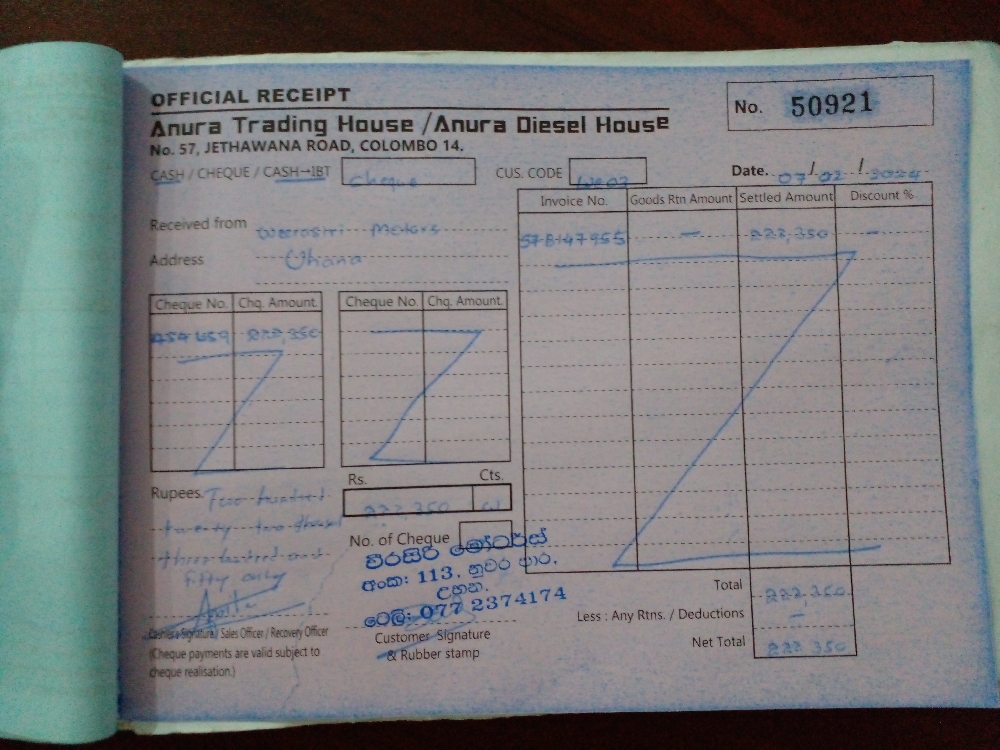 OFFICIAL RECEIPT
No. 50921
Anura Trading House / Anura Diesel House
No. 57, JETHAWANA ROAD, COLOMBO 14.
CASH / CHEQUE / CASH→IBT Cheque
CUS. CODE
Date. 07/02/2024
Received from Weerasiri Motors
Address Uhana
Invoice No. Goods Rtn Amount Settled Amount Discount %
578147955 — 222,350 —
Cheque No. Chq. Amount. Cheque No. Chq. Amount.
222,350
Rs. Cts.
222,350
Rupees. Two hundred
twenty two
three hundred and
fifty only
No. of Cheque
වීරසිරි මෝටර්ස්
අංක: 113, නුවර පාර,
උහන.
ටෙලි: 077 2374174
Cashier's Signature / Sales Officer / Recovery Officer
(Cheque payments are valid subject to
cheque realisation.)
Customer Signature
& Rubber stamp
Total 222,350
Less : Any Rtns. / Deductions —
Net Total 222,350